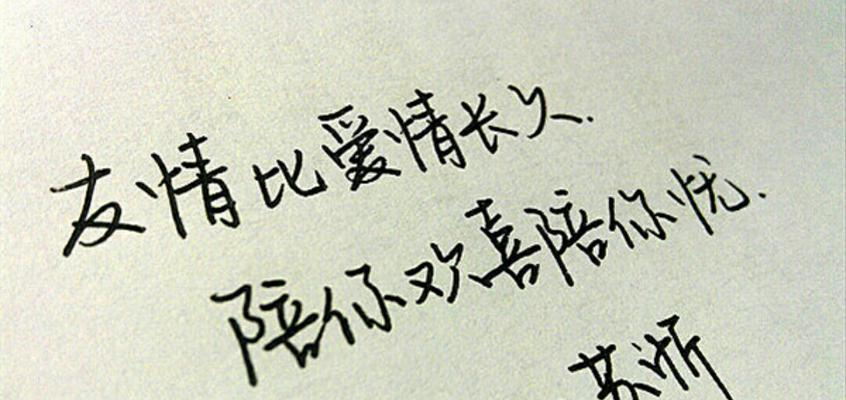 友情比爱情长久.
陪你欢喜陪你忧.
苏浙